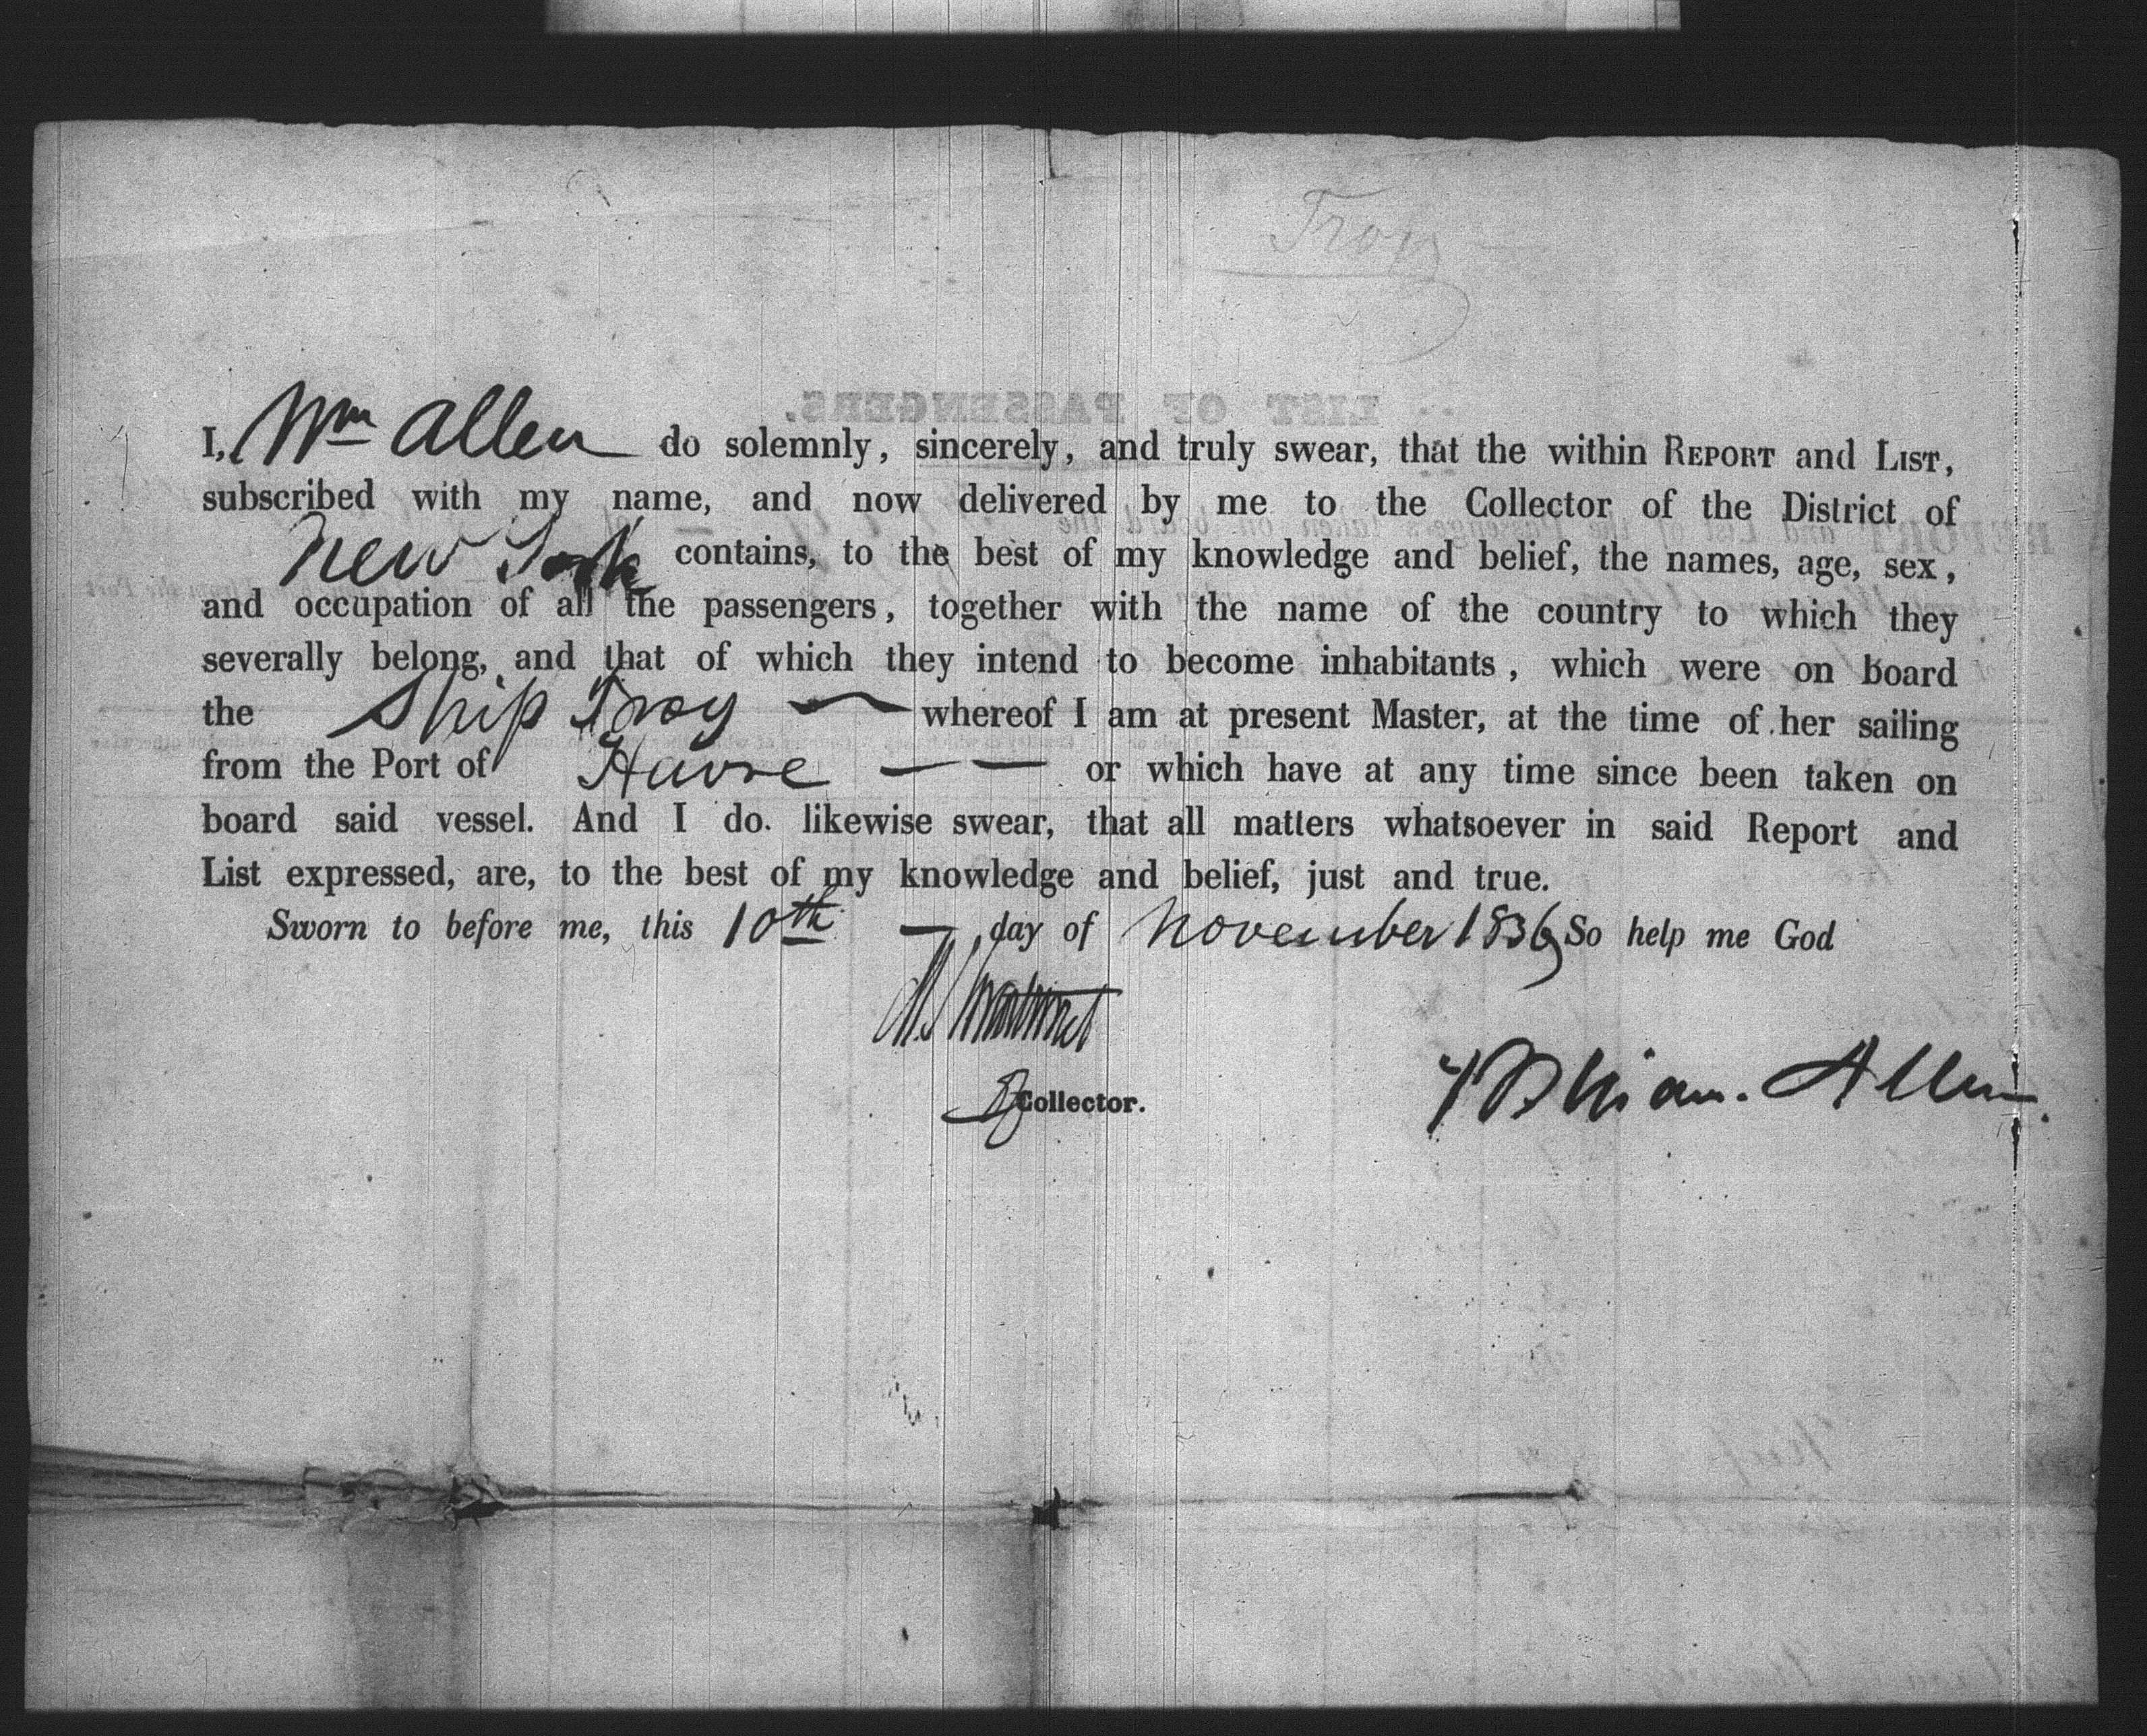 Troy
I, Wm Allen do solemnly, sincerely, and truly swear, that the within REPORT and LIST,
subscribed with my name, and now delivered by me to the Collector of the District of
New York contains, to the best of my knowledge and belief, the names, age, sex,
and occupation of all the passengers, together with the name of the country to which they
severally belong, and that of which they intend to become inhabitants, which were on board
the Ship Troy whereof I am at present Master, at the time of her sailing
from the Port of Havre — — or which have at any time since been taken on
board said vessel. And I do. likewise swear, that all matters whatsoever in said Report and
List expressed, are, to the best of my knowledge and belief, just and true.
Sworn to before me, this 10th — day of November 1836 So help me God
Collector.
William. Allen